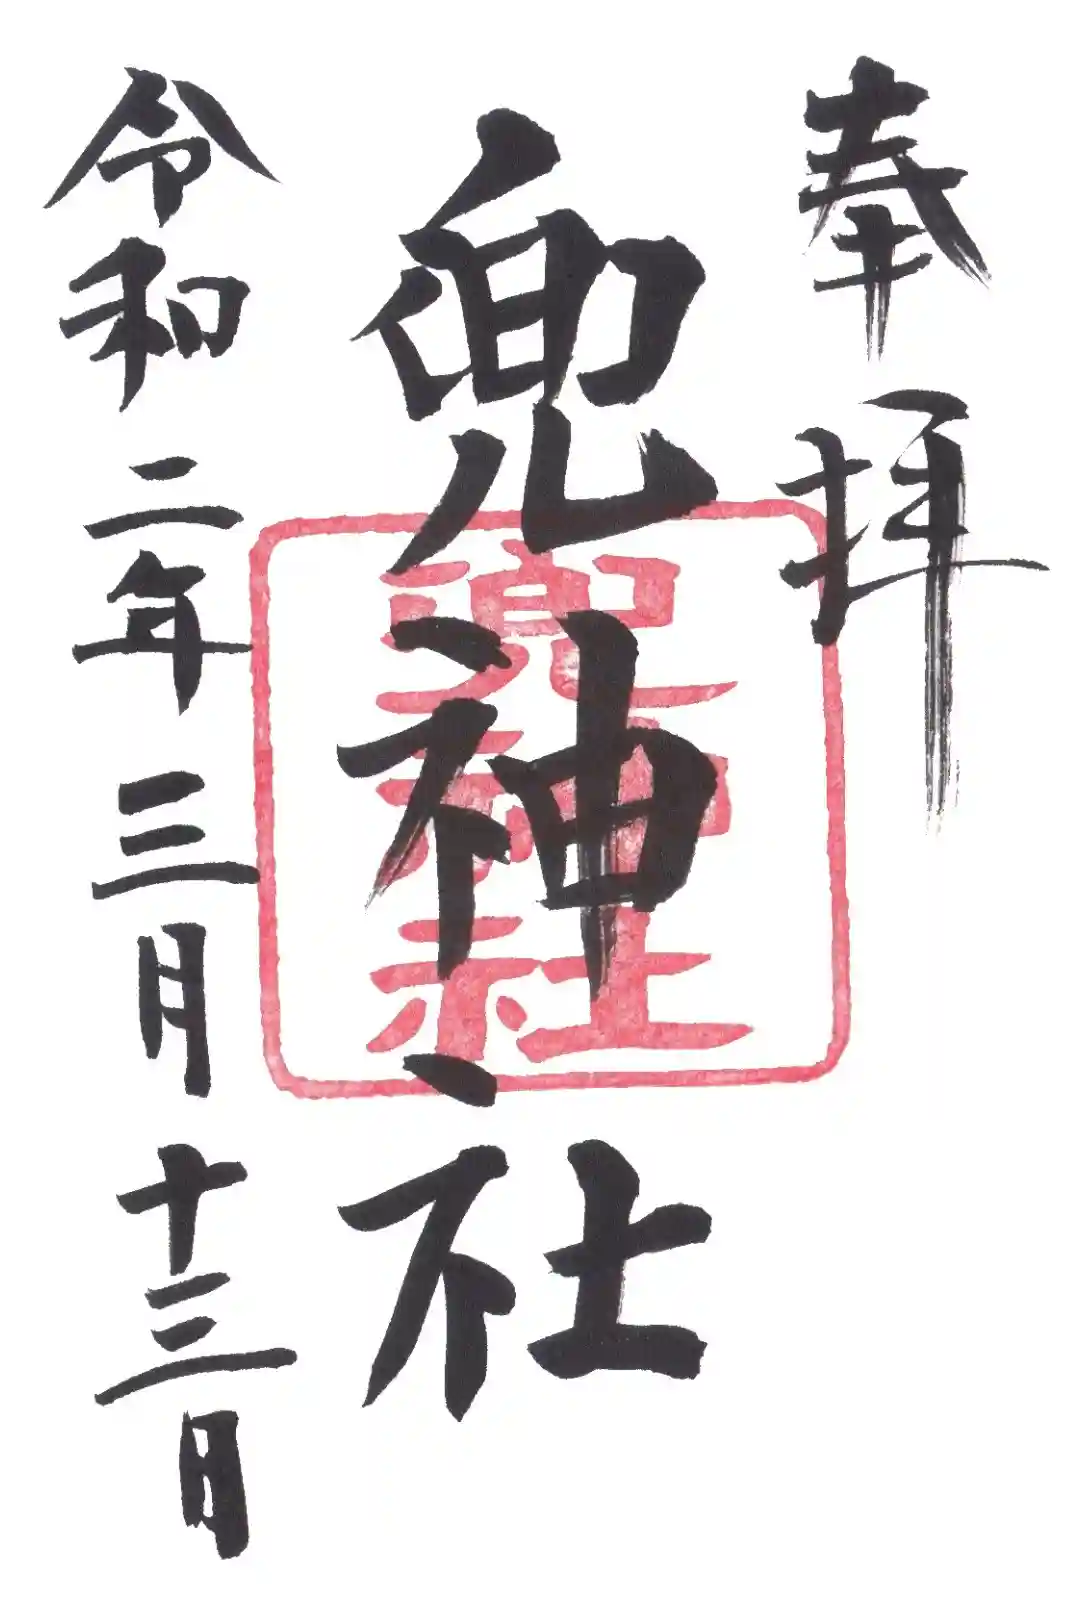 奉拝
兜神社
兜神社
令和二年三月十三日